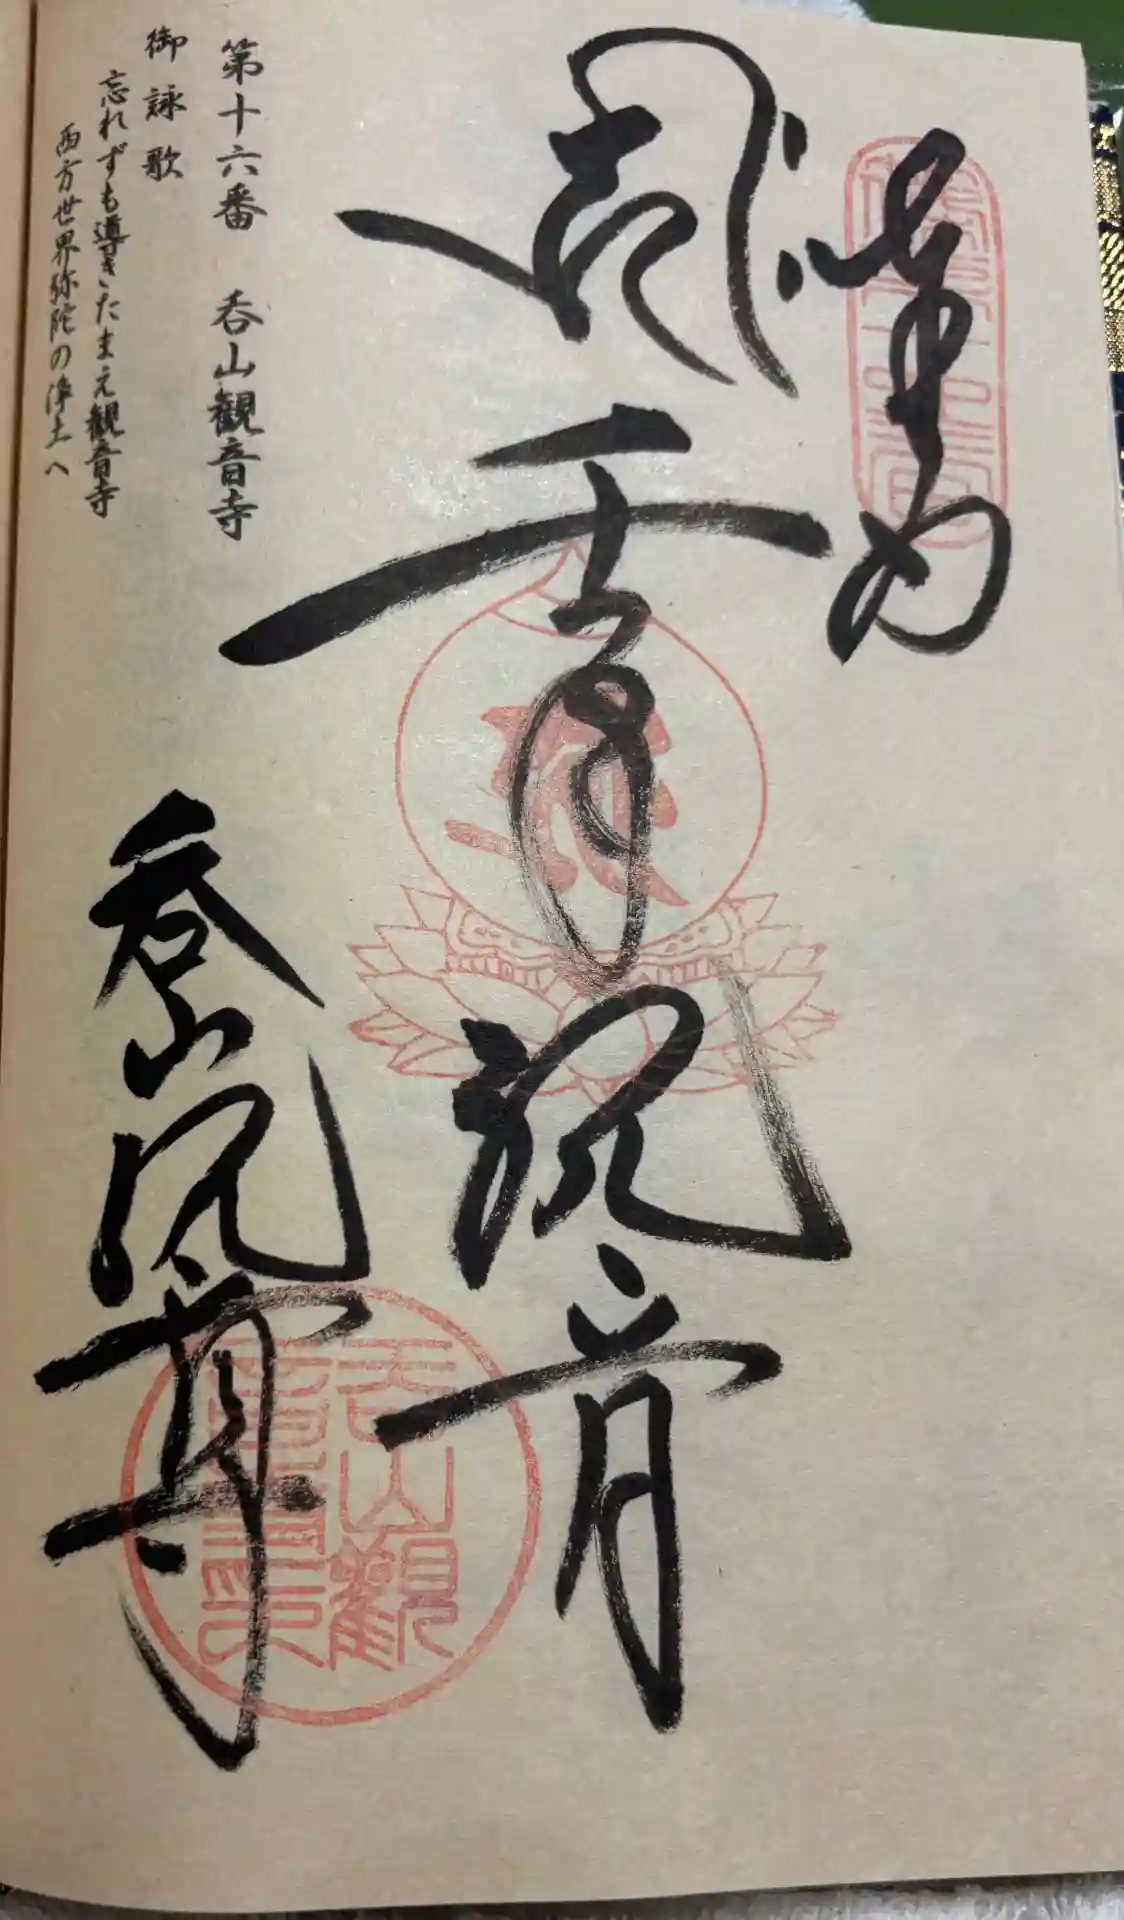 奉納
千手観音
呑山観音寺
第十六番 呑山観音寺
御詠歌
忘れずも導きたまえ観音寺
西方世界弥陀の浄土へ
呑山観音寺印